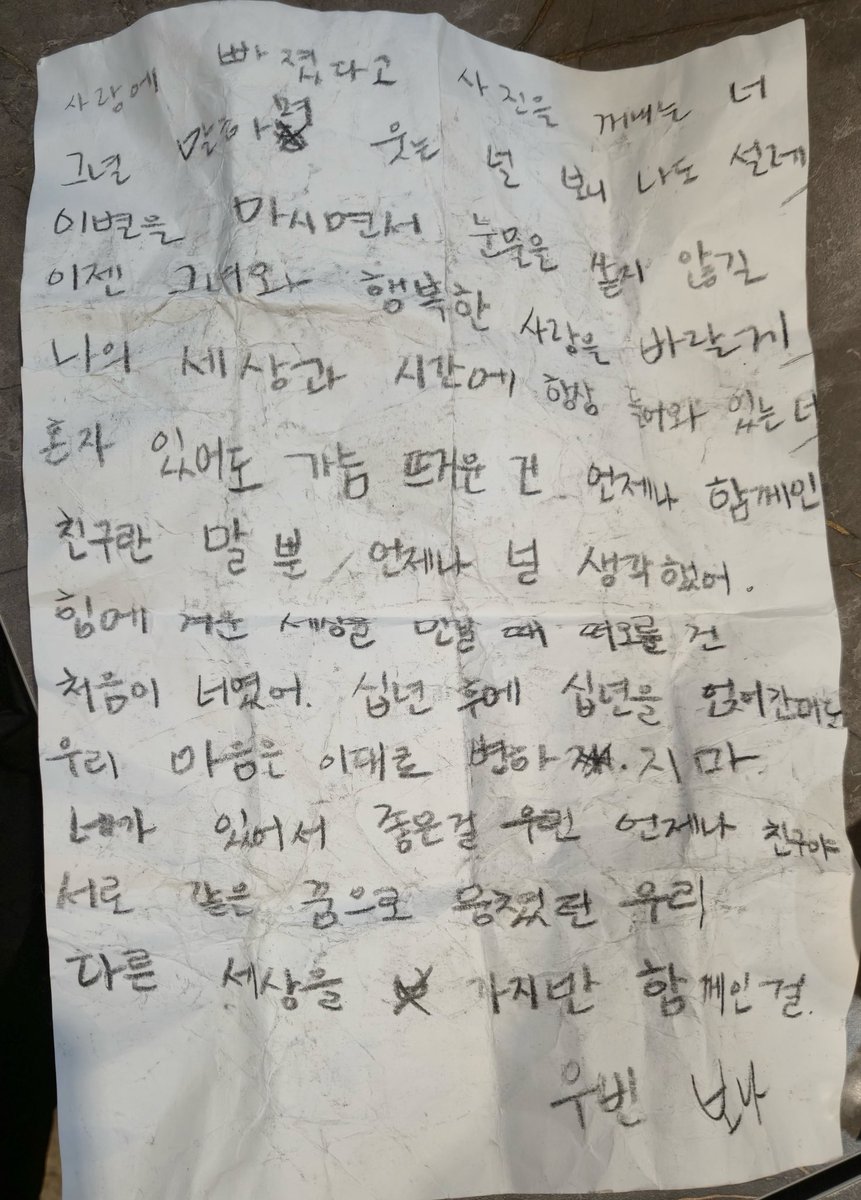 사랑에 빠졌다고 사진을 꺼내는 너
그녈 말하며 웃는 널 보니 나도 설레
이별을 마시면서 눈물을 쏟지 않길
이젠 그녀와 행복한 사랑을 바랄게
나의 세상과 시간에 항상 들어와 있는 너
혼자 있어도 가슴 뜨거운 건 언제나 함께인
친구란 말 뿐 언제나 널 생각했어.
힘에 겨운 세상을 만날 때 떠오를 건
처음이 너였어. 십년 후에 십년을
우리 마음은 이대로 변하지마
네가 있어서 좋은걸 우린 언제나 친구야
서로 같은 꿈으로 뭉쳤던 우리
다른 세상을 가지만 함께인 걸.
우빈 보나